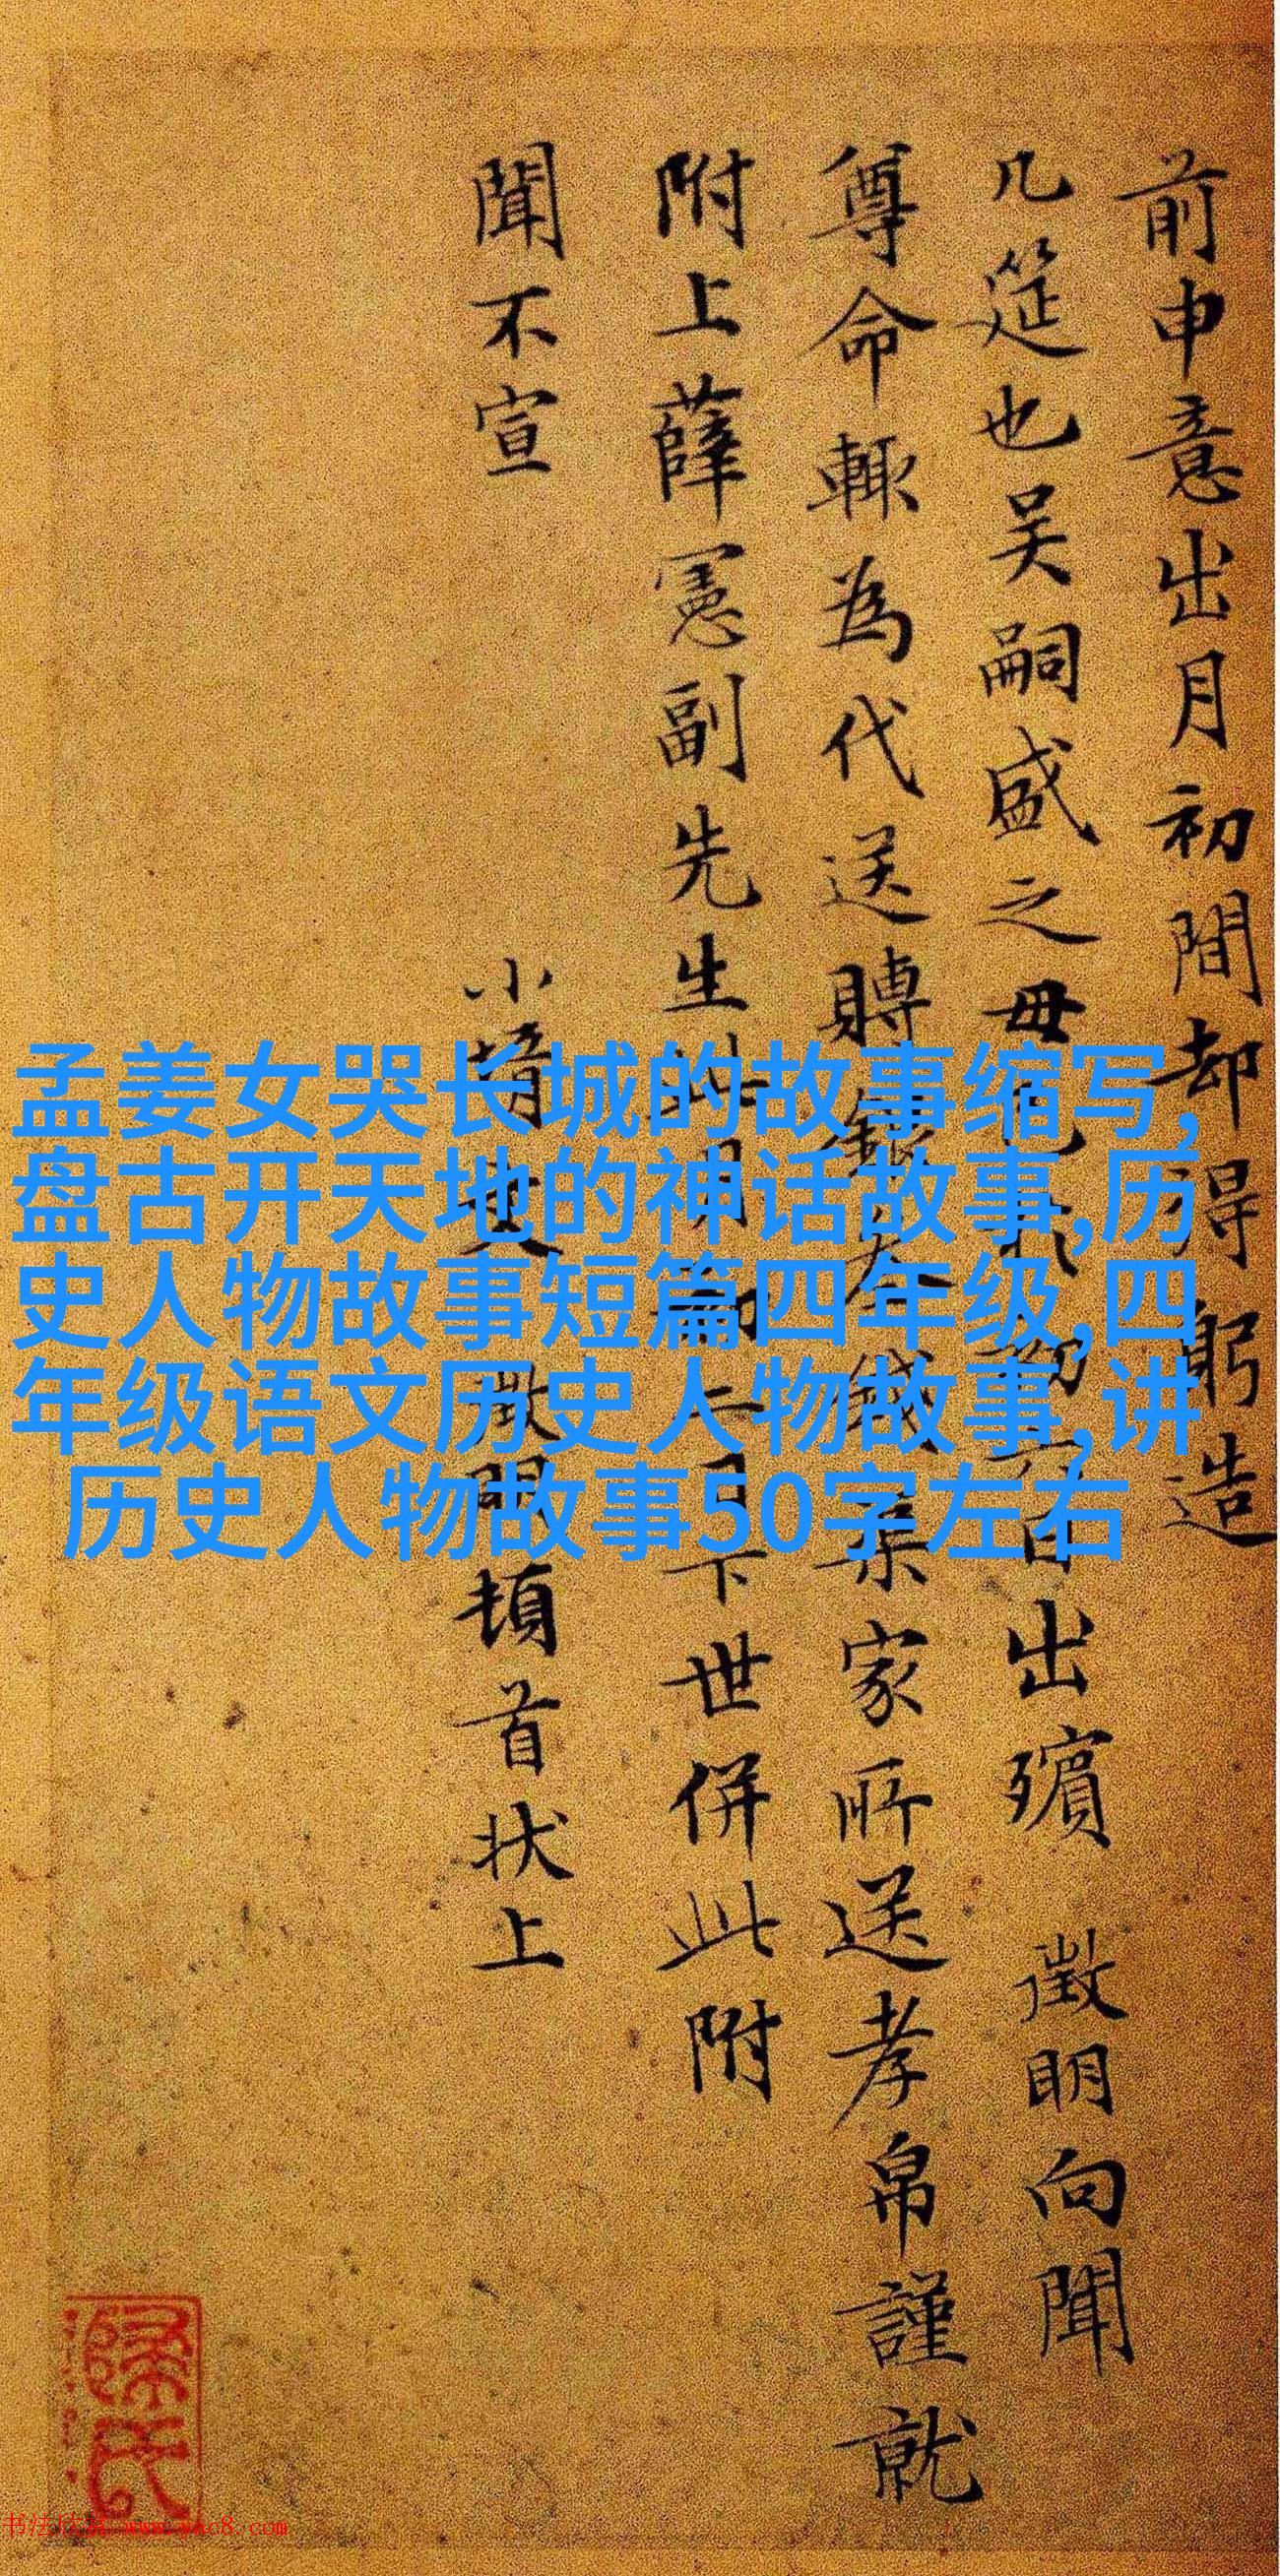 前申意出月初間却得躬造
几筵也吴嗣盛之毋
出殯 徵明向聞
尊命輒為代送賻
家所送孝帛謹就
附上薛憲副先生
下世併此附
聞不宣
小壻文徵明頓首狀上
孟姜女哭长城的故事缩写,
盘古开天地的神话故事,历
史人物故事短篇四年级,四
年级语文历史人物故事,讲
历史人物故事50字左右
书法欣赏 www.yac8.com